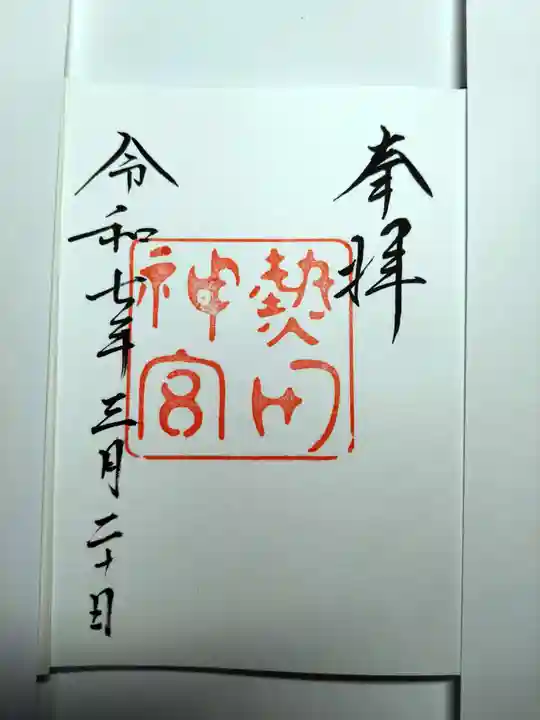 奉拝
熱田
神宮
令和七年三月二十日